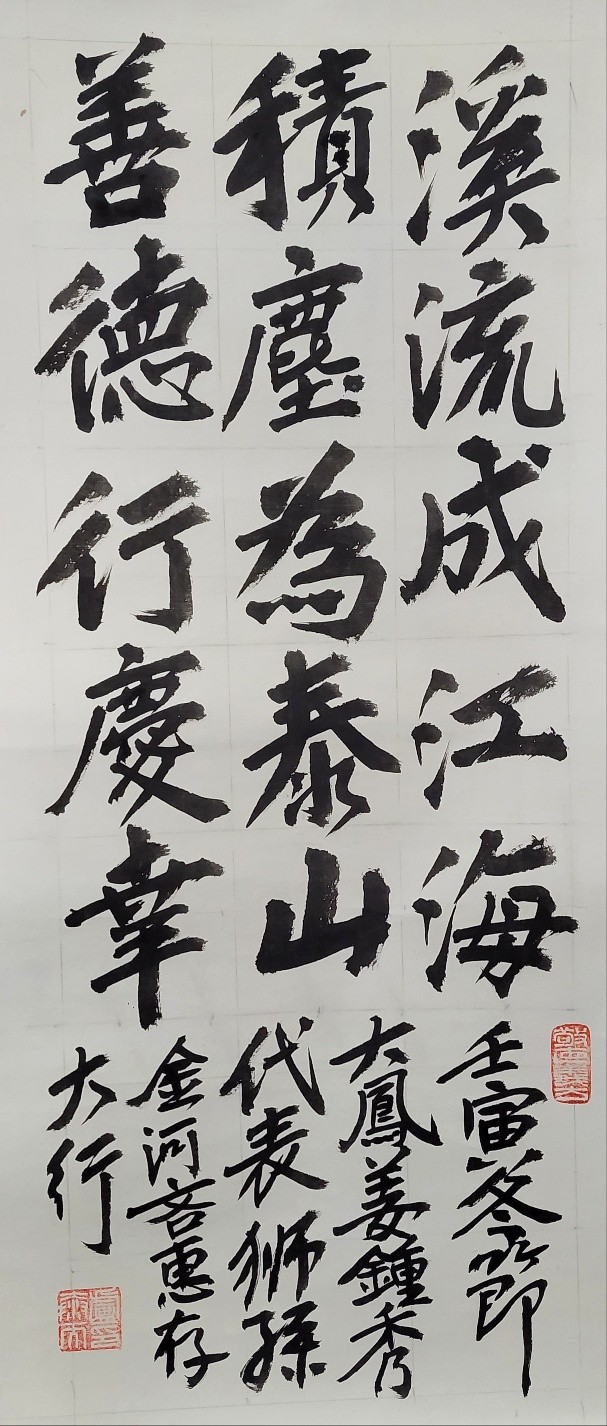 溪流成江海
積塵為泰山
善德行慶幸
壬寅冬節
大鳳姜鍾秀
代表獅孫
金河吝惠存
大行